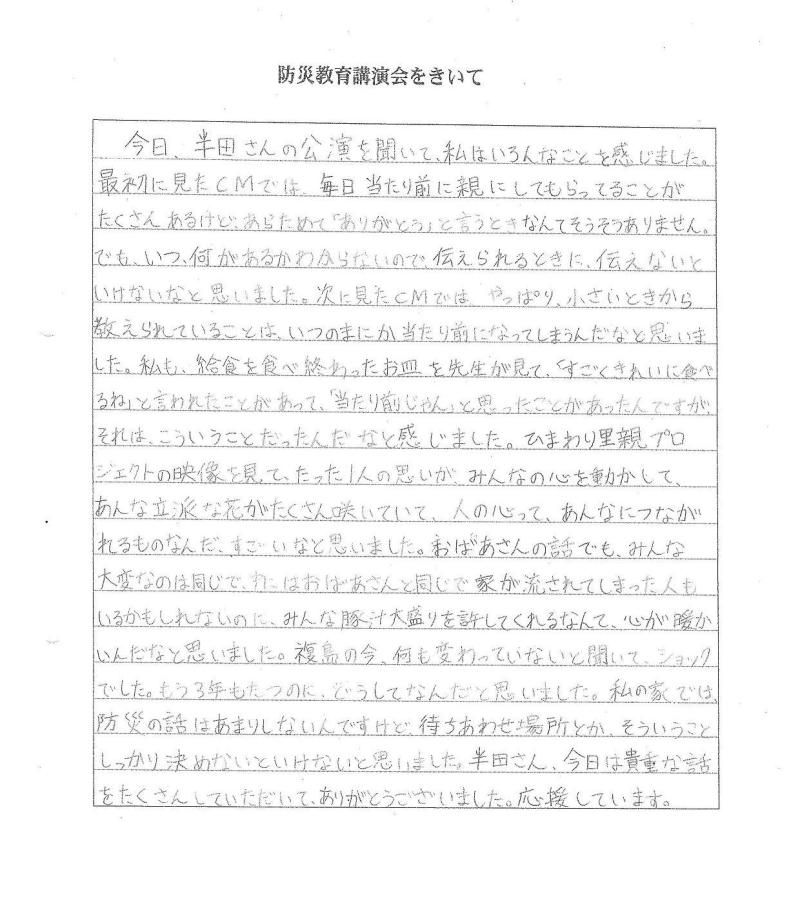 防災教育講演会をきいて
今日、半田さんの公演を聞いて、私はいろんなことを感じました。
最初に見たCMでは、毎日当たり前に親にしてもらってることが
たくさんあるけど、あらためて「ありがとう」と言うときなんてそうそうありません。
でも、いつ、何があるかわからないので、伝えられるときに、伝えないと
いけないなと思いました。次に見たCMでは、やっぱり、小さいときから
教えられていることは、いつのまにか当たり前になってしまうんだなと思いま
した。私も、給食を食べ終わったお皿を先生が見て、「すごくきれいに食べ
るね」と言われたことがあって、「当たり前じゃん」と思ったことがあったんですが、
それは、こういうことだったんだなと感じました。ひまわり里親プロ
ジェクトの映像を見て、たった1人の思いが、みんなの心を動かして、
あんな立派な花がたくさん咲いていて、人の心って、あんなにつなが
れるものなんだ、すごいなと思いました。おばあさんの話でも、みんな
大変なのは同じで、中にはおばあさんと同じで家が流されてしまった人も
いるかもしれないのに、みんな豚汁大盛りを許してくれるなんて、心が暖か
いんだなと思いました。福島の今、何も変わっていないと聞いて、ショック
でした。もう3年もたつのに、どうしてなんだと思いました。私の家では、
防災の話はあまりしないんですけど、待ちあわせ場所とか、そういうこと
しっかり決めないといけないと思いました。半田さん、今日は貴重な話
をたくさんしていただいて、ありがとうございました。応援しています。